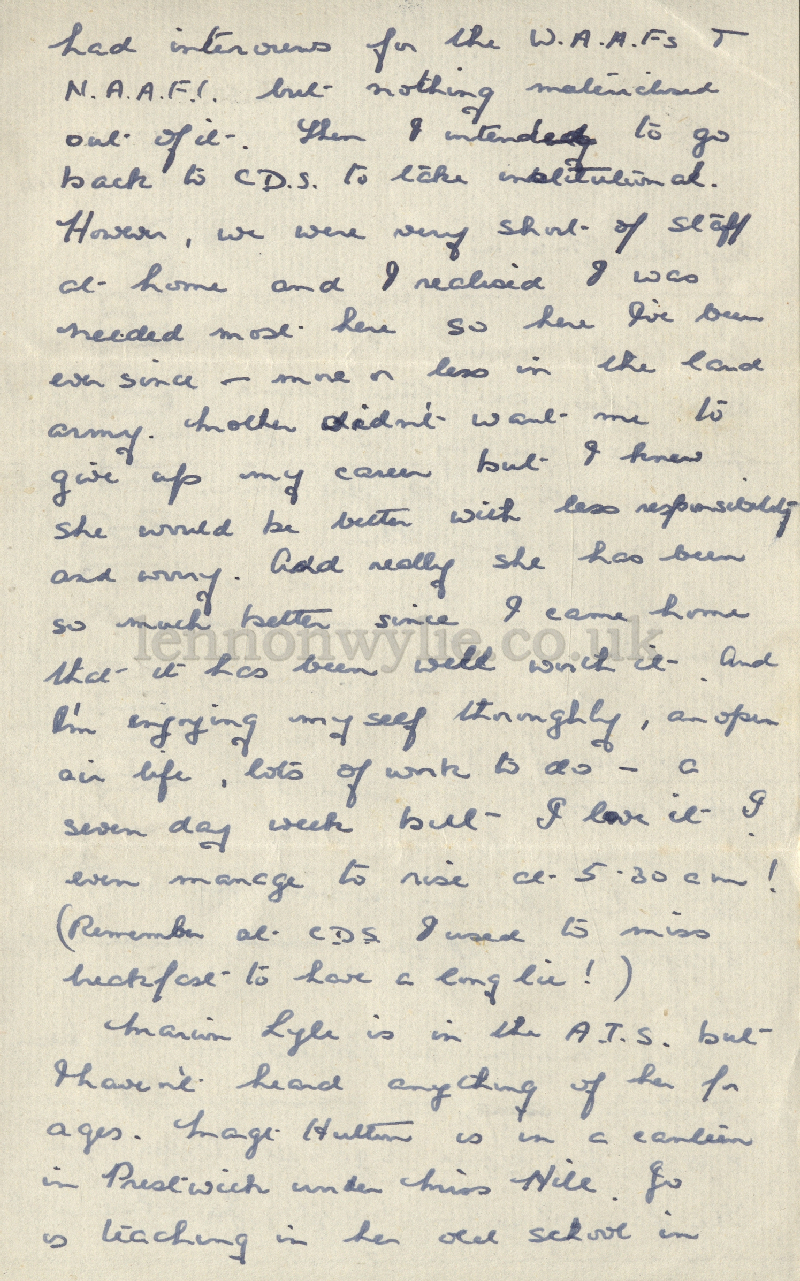 had interviews for the W.A.A.Fs &
N.A.A.F.I. but nothing materialised
out of it. Then I intended to go
back to C.D.S. to take institutional.
However, we were very short of staff
at home and I realised I was
needed most here so here I've been
ever since — more or less in the land
army. Mother didn't want me to
give up my career but I knew
she would be better with less responsibility
and worry. And really she has been
so much better since I came home
lennonwylie.co.uk
that it has been well worth it. And
I'm enjoying myself thoroughly, an open
air life, lots of work to do — a
seven day week but I love it. I
even manage to rise at 5.30 am!
(Remember at CDS I used to miss
breakfast to have a long lie!)
Marion Lyle is in the A.T.S. but
I haven't heard anything of her for
ages. Marge Hutton is in a canteen
in Prestwick under Miss Hill. Jo
is teaching in her old school in